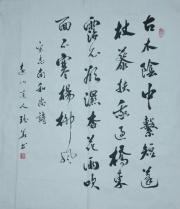 古木陰中繫短蓬
杖藜扶我過橋東
霑衣欲濕杏花雨吹
面不寒楊柳風
宋志南和尚詩
山道人 書